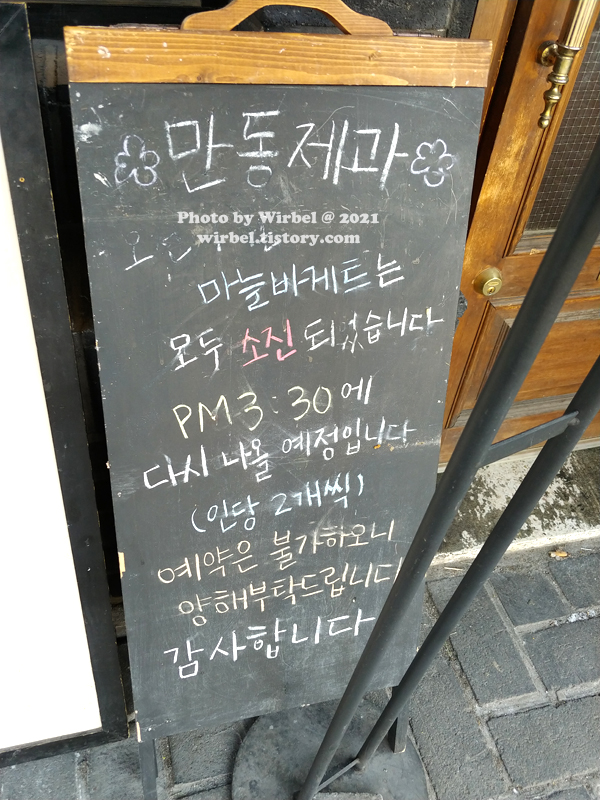 만동제과
Photo by Wirbel @ 2021
wirbel.tistory.com
마늘바게트는
모두 소진 되었습니다
PM 3:30에
다시 나올 예정입니다
(인당 2개씩)
예약은 불가하오니
양해부탁드립니다
감사합니다